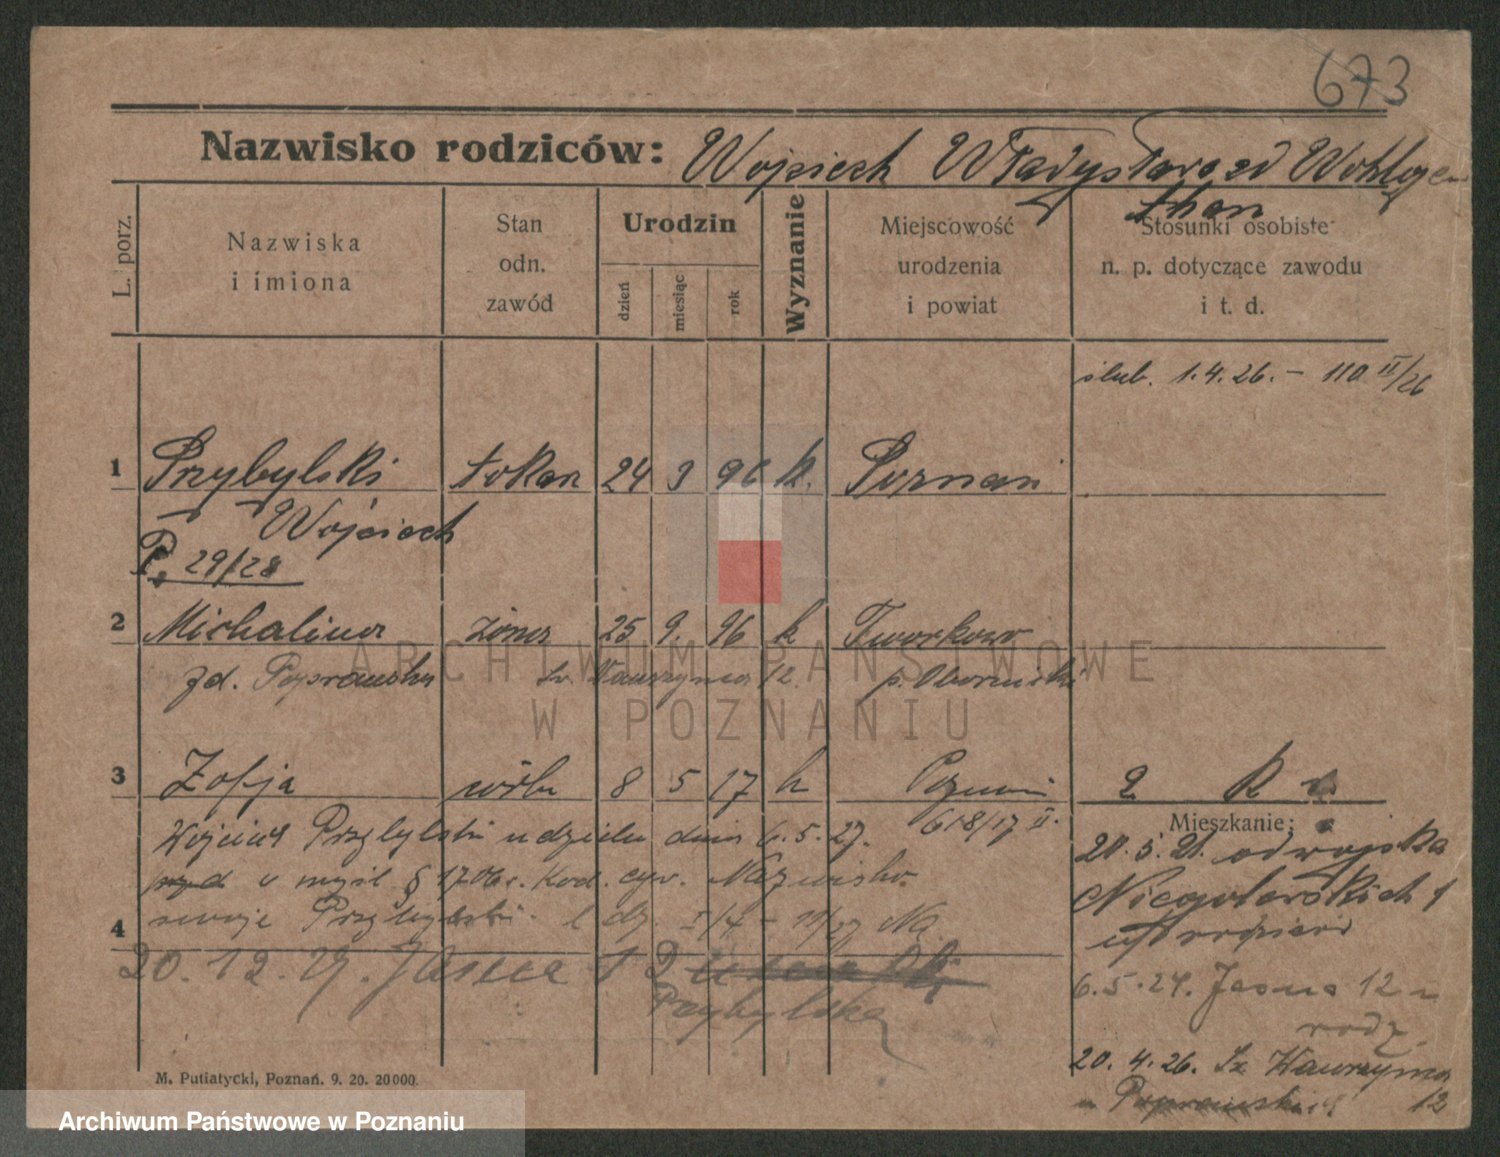 673
Nazwisko rodziców: Wojciech Władysława zd Wohlgethan
L. porz.
Nazwiska
i imiona
Stan
odn.
zawód
Urodzin
dzień
miesiąc
rok
Wyznanie
Miejscowość
urodzenia
i powiat
Stosunki osobiste
n. p. dotyczące zawodu
i t. d.
ślub. 1.4.26. - 110 II/26
1 Przybylski tokarz 24 3 96 k. Poznań
Wojciech
P. 29/28
2 Michalina żona 25 9. 96 k Tworkowo
zd. Poprawska Św. Wawrzyńca 12. p. Obornicki
3 Zofja córka 8 5 17 k Poznań 2 k
618/17 II.
Wojciech Przybylski udzielił dnia 6.5.27.
w myśl § 1706 Kod. cyw. Nazwisko
4 swoje Przybylski
20.12.29. Jasna 1
Przybylska
Mieszkanie:
20.5.21. od wojska
Niegolewskich 1
u rodzicói
6.5.24. Jasna 12 u
rodz.
20.4.26. Św Wawrzyńca
u Poprawskich 12
M. Putiatycki, Poznań. 9. 20. 20000.
ARCHIWUM PAŃSTWOWE
W POZNANIU
Archiwum Państwowe w Poznaniu